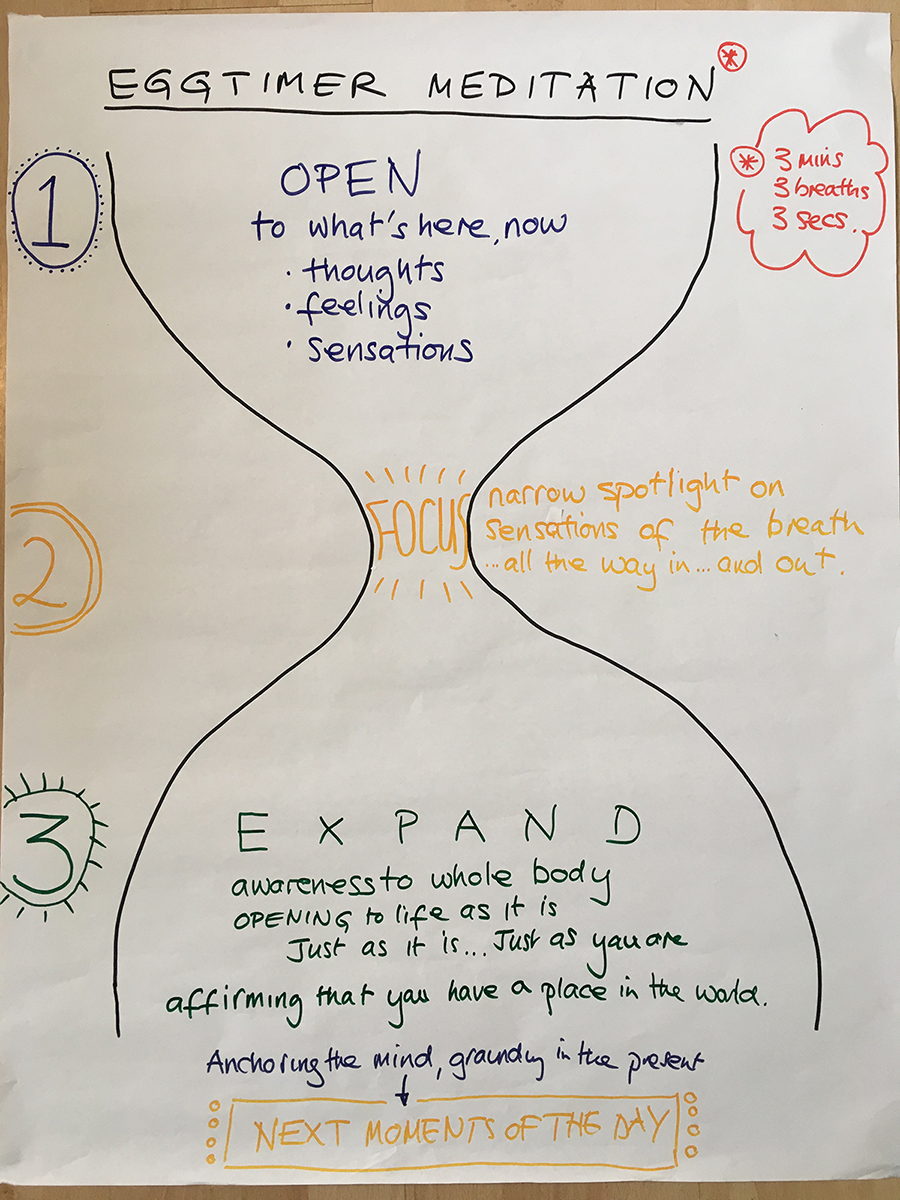 EGGTIMER MEDITATION*
* 3 mins
3 breaths
3 secs.
1
OPEN
to what's here, now
· thoughts
· feelings
· sensations
2
FOCUS
narrow spotlight on
sensations of the breath
...all the way in... and out.
3
EXPAND
awareness to whole body
OPENING to life as it is
Just as it is... Just as you are
affirming that you have a place in the world.
Anchoring the mind, grounding in the present
NEXT MOMENTS OF THE DAY